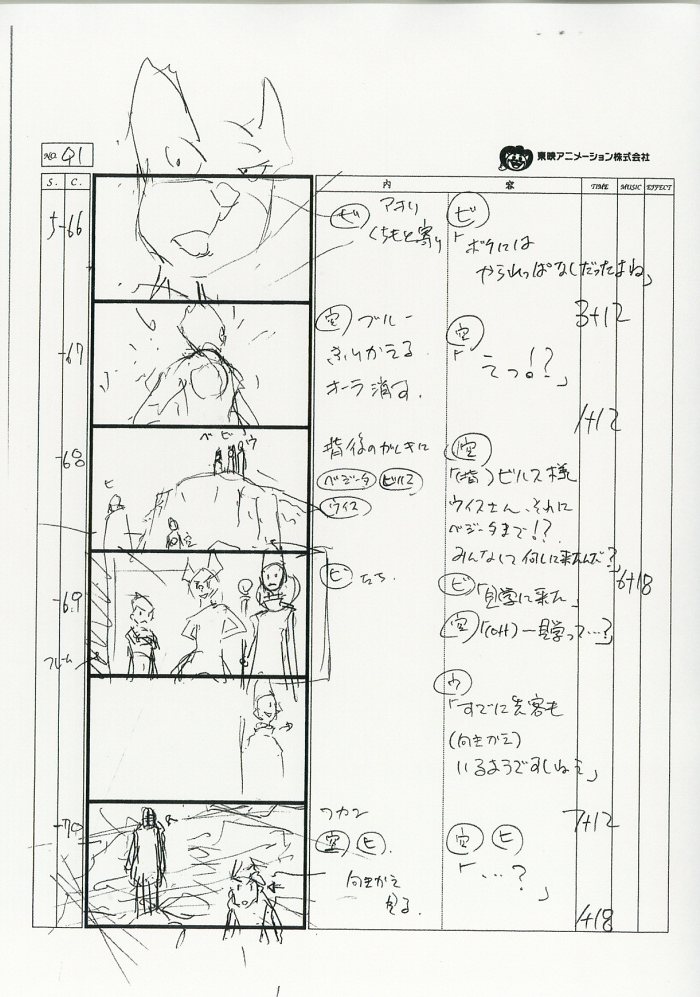 NO. 91
東映アニメーション株式会社
S. C. 内 容 TIME MUSIC EFFECT
5-66
ビ アオリ
くちもと寄り
ビ
「ボクには
やられっぱなしだったよね」
3+12
-67
空 ブルー
きりかえる
オーラ消す.
空
「えっ!?」
1+12
-68
ベ ビ ウ
ヒ
空
背後のがしきに
ベジータ ビルス
ウイス
空
「(背)ビルス様
ウイスさん、それに
ベジータまで!?
みんなして何しに来たんだ?」
6+18
-69
フレーム
ビ たち.
ビ「見学に来た」
空「(off)見学って…?」
ウ
「すでに先客も
(向きかえ)
いるようですしねえ」
7+12
-70
フカン
空 ヒ.
向きかえ
見る.
空 ヒ
「…?」
1+18